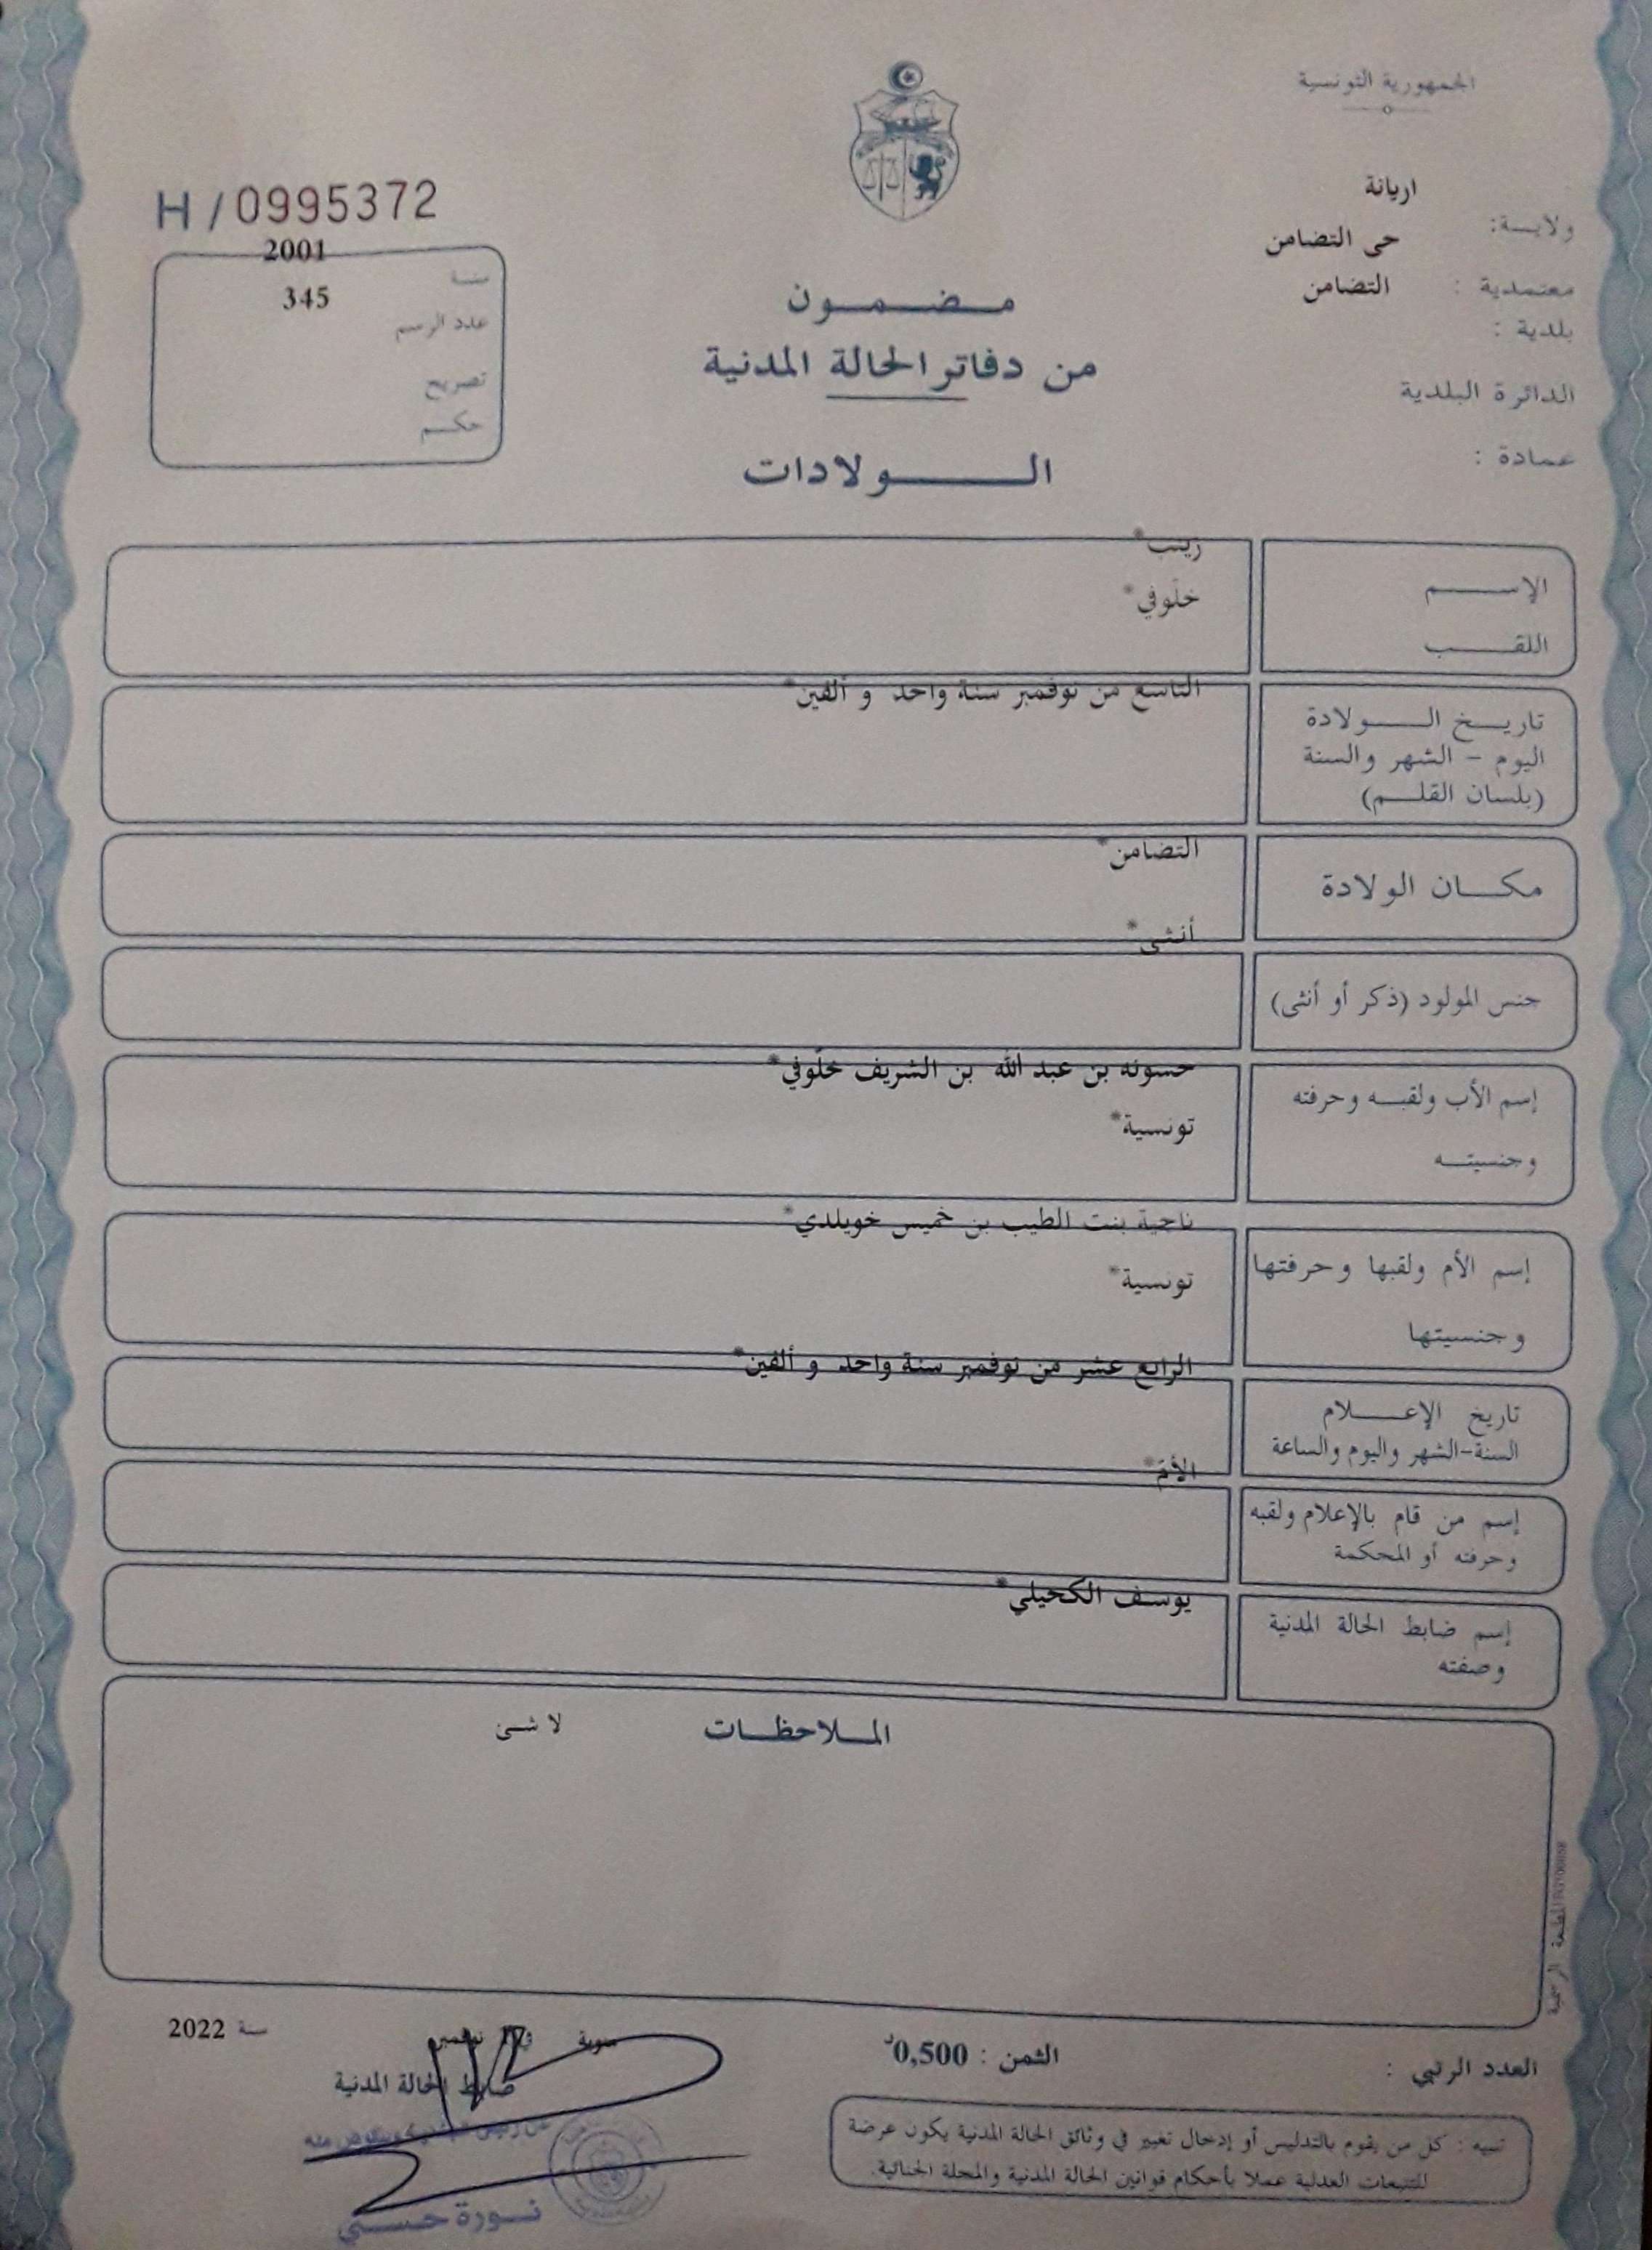 الجمهورية التونسية
اريانة
ولايـة:
حى التضامن
معتمدية :
التضامن
بلدية :
الدائرة البلدية
عمادة :
H / 0995372
2001
سنـة
345
عدد الرسم
تصريح
حكـم
مـضـمـون
من دفاتر الحالة المدنية
الـولادات
الإسـم
زينب*
اللقـب
خلّوفي*
تاريـخ الـولادة
اليوم - الشهر والسنة
(بلسان القلـم)
التاسع من نوفمبر سنة واحد و ألفين*
مكـان الولادة
التضامن*
جنس المولود (ذكر أو أنثى)
أنثى*
إسم الأب ولقبـه وحرفته
حسونه بن عبد الله بن الشريف خلّوفي*
وجنسيتـه
تونسية*
إسم الأم ولقبها وحرفتها
ناجية بنت الطيب بن خميس خويلدي*
وجنسيتها
تونسية*
تاريخ الإعـلام
السنة-الشهر واليوم والساعة
الرابع عشر من نوفمبر سنة واحد و ألفين*
إسم من قام بالإعلام ولقبه
وحرفته أو المحكمة
الأمّ*
إسم ضابط الحالة المدنية
وصفته
يوسف الكحيلي*
المـلاحظـات
لا شئ
المطبعة الرسمية
العدد الرتبي :
الثمن : 0,500د
نوفمبر
سنة 2022
ضابط الحالة المدنية
نـورة حسـني
تنبيه : كل من يقوم بالتدليس أو إدخال تغيير في وثائق الحالة المدنية يكون عرضة
للتتبعات العدلية عملا بأحكام قوانين الحالة المدنية والمجلة الجنائية.